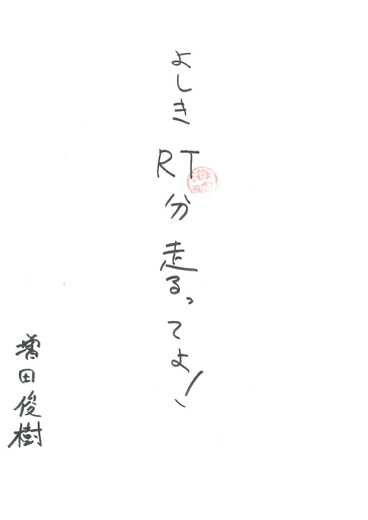 よしき RT分 走るってよ!
増田俊樹